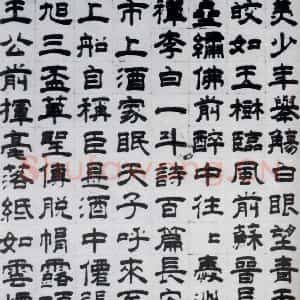 美少年舉觴白眼望青
皎如玉樹臨風前蘇晉
繡佛前醉中往〻愛
禪李白一斗詩百篇長
市上酒家眠天子呼來
上船自稱臣是酒中僊
旭三盃草聖傳脫帽露
王公前揮毫落紙如雲
Shufawang.CN